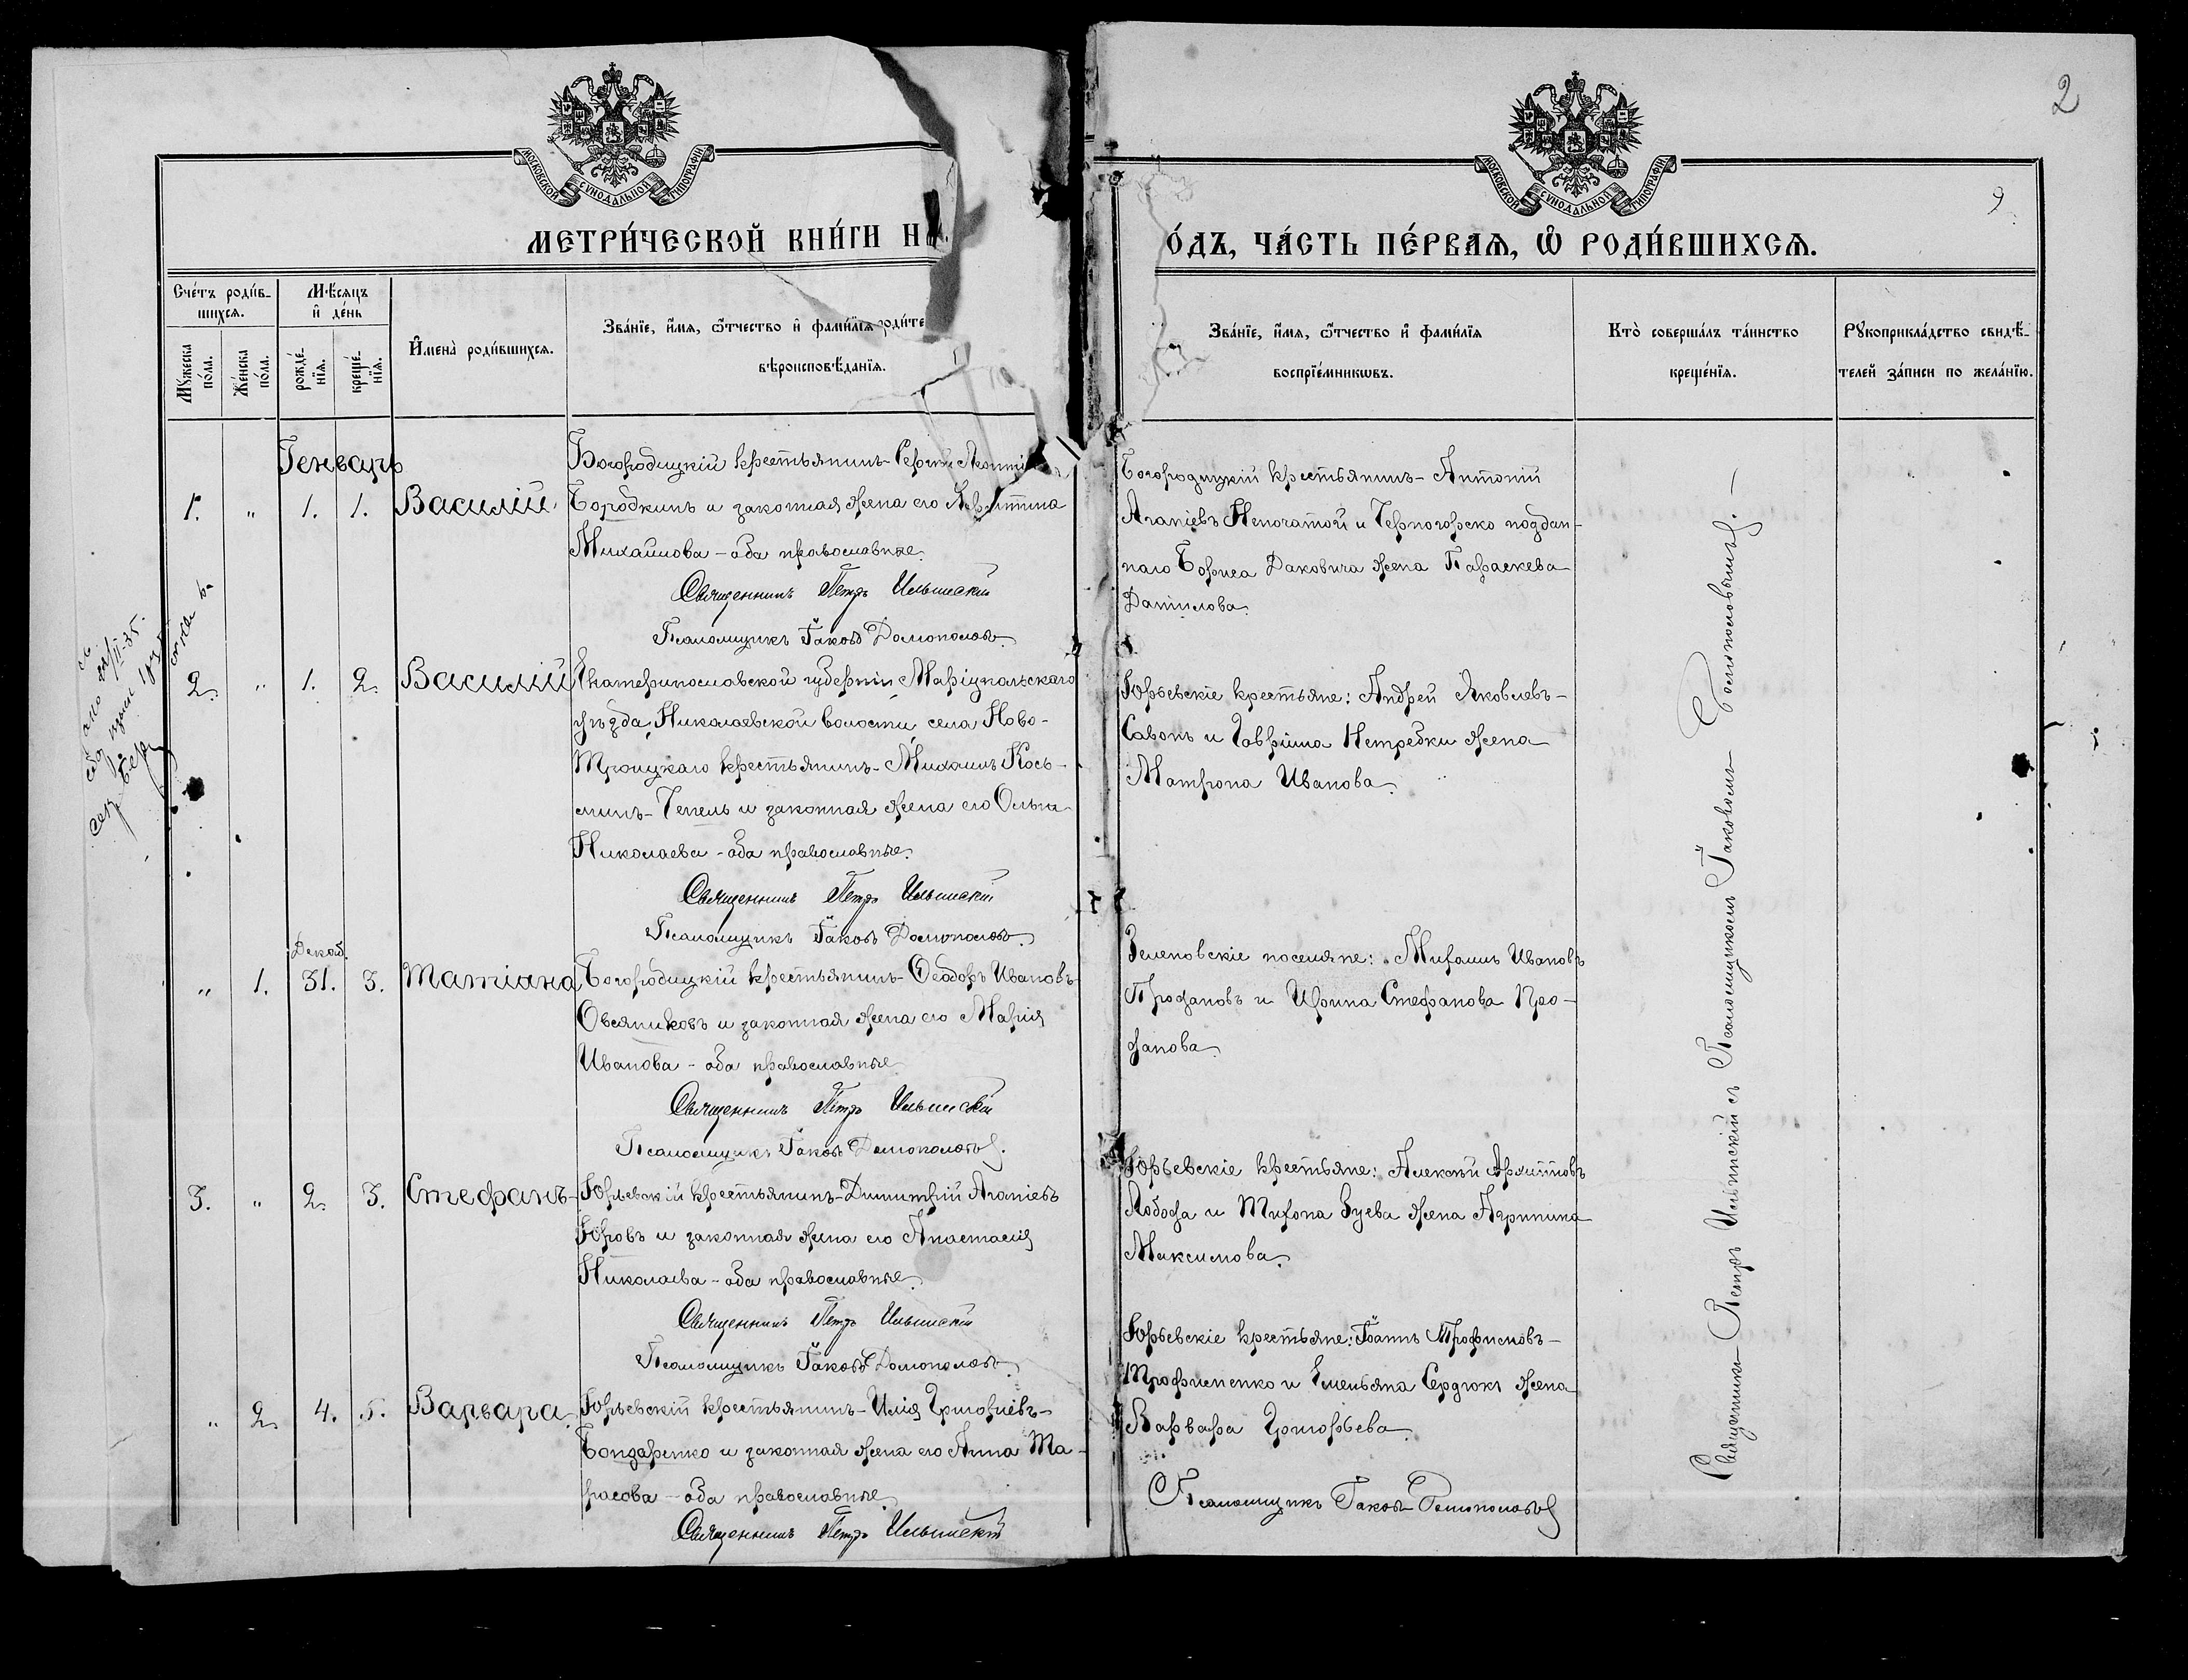 2
9
МОСКОВСКОЙ СУНОДАЛЬНОЙ ТИПОГРАФІИ
МОСКОВСКОЙ СУНОДАЛЬНОЙ ТИПОГРАФІИ
МЕТРИ́ЧЕСКОЙ КНИ́ГИ Н
О́ДЪ, ЧА́СТЬ ПЕ́РВАѦ, Ѽ РОДИ́ВШИХСѦ.
Сче́тъ роди́в-
шихсѧ.
Мѣ́сѧцъ
и҆ де́нь
Мꙋ́жеска
по́ла.
Же́нска
по́ла.
рожде́-
нїѧ.
креще́-
нїѧ.
И҆мена̀ роди́вшихсѧ.
Зва́нїе, и҆́мѧ, ѻ҆́тчество и҆ фами́лїѧ роди́те
вѣроисповѣ́данїѧ.
Зва́нїе, и҆́мѧ, ѻ҆́тчество и҆ фами́лїѧ
воспрїе́мникѡвъ.
Кто̀ соверша́лъ та́инство
креще́нїѧ.
Рꙋкоприкла́дство свидѣ́-
телей за́писи по жела́нїю.
Генварь
1. " 1. 1. Василій
Богородицкій крестьянинъ - Сергій
Бородкинъ и законная жена его
Михайлова - оба православные.
Священникъ Петръ Ильинскій
Псаломщикъ Іаковъ
Богородицкій крестьянинъ - Антоній
Агапіевъ Непочатой и Черногорско поддан-
наго Бориса Даковича жена Параскева
Даніилова.
2. " 1. 2. Василій
Екатеринославской губерніи, Маріупольскаго
уѣзда, Николаевской волости, села Ново-
Троицкаго крестьянинъ - Михаилъ Кось-
минъ - Чепель и законная жена его Ольга
Николаева - оба православные.
Священникъ Петръ Ильинскій
Псаломщикъ Іаковъ
Юрьевскіе крестьяне: Андрей Яковлевъ -
Савонъ и Гавріила Нетребки жена
Матрона Иванова.
Декаб.
" 1. 31. 3. Татіана
Богородицкій крестьянинъ - Ѳеодоръ Ивановъ
Овсяниковъ и законная жена его Марія
Иванова - оба православные
Священникъ Петръ Ильинскій
Псаломщикъ Іаковъ
Зеленовскіе поселяне: Михаилъ Ивановъ
Профановъ и Ирина Стефанова Про-
фанова.
3. " 2. 3. Стефанъ
Юрьевскій крестьянинъ - Димитрій Агапіевъ
Юровъ и законная жена его Анастасія
Николаева - оба православные.
Священникъ Петръ Ильинскій
Псаломщикъ Іаковъ
Юрьевскіе крестьяне: Алексѣй Архиповъ
Лобода и Тихона Зуева жена
Максимова.
" 2. 4. 5. Варвара.
Юрьевскій крестьянинъ - Илія Григоріевъ -
Бондаренко и законная жена его Анна Та-
расова - оба православные.
Священникъ Петръ Ильинскій
Юрьевскіе крестьяне: Іоаннъ Трофимовъ -
Трофименко и Емельяна Сердюкъ жена
Варвара Григорьева.
Псаломщикъ Іаковъ
Священникъ Петръ Ильинскій съ Псаломщикомъ Іаковомъ